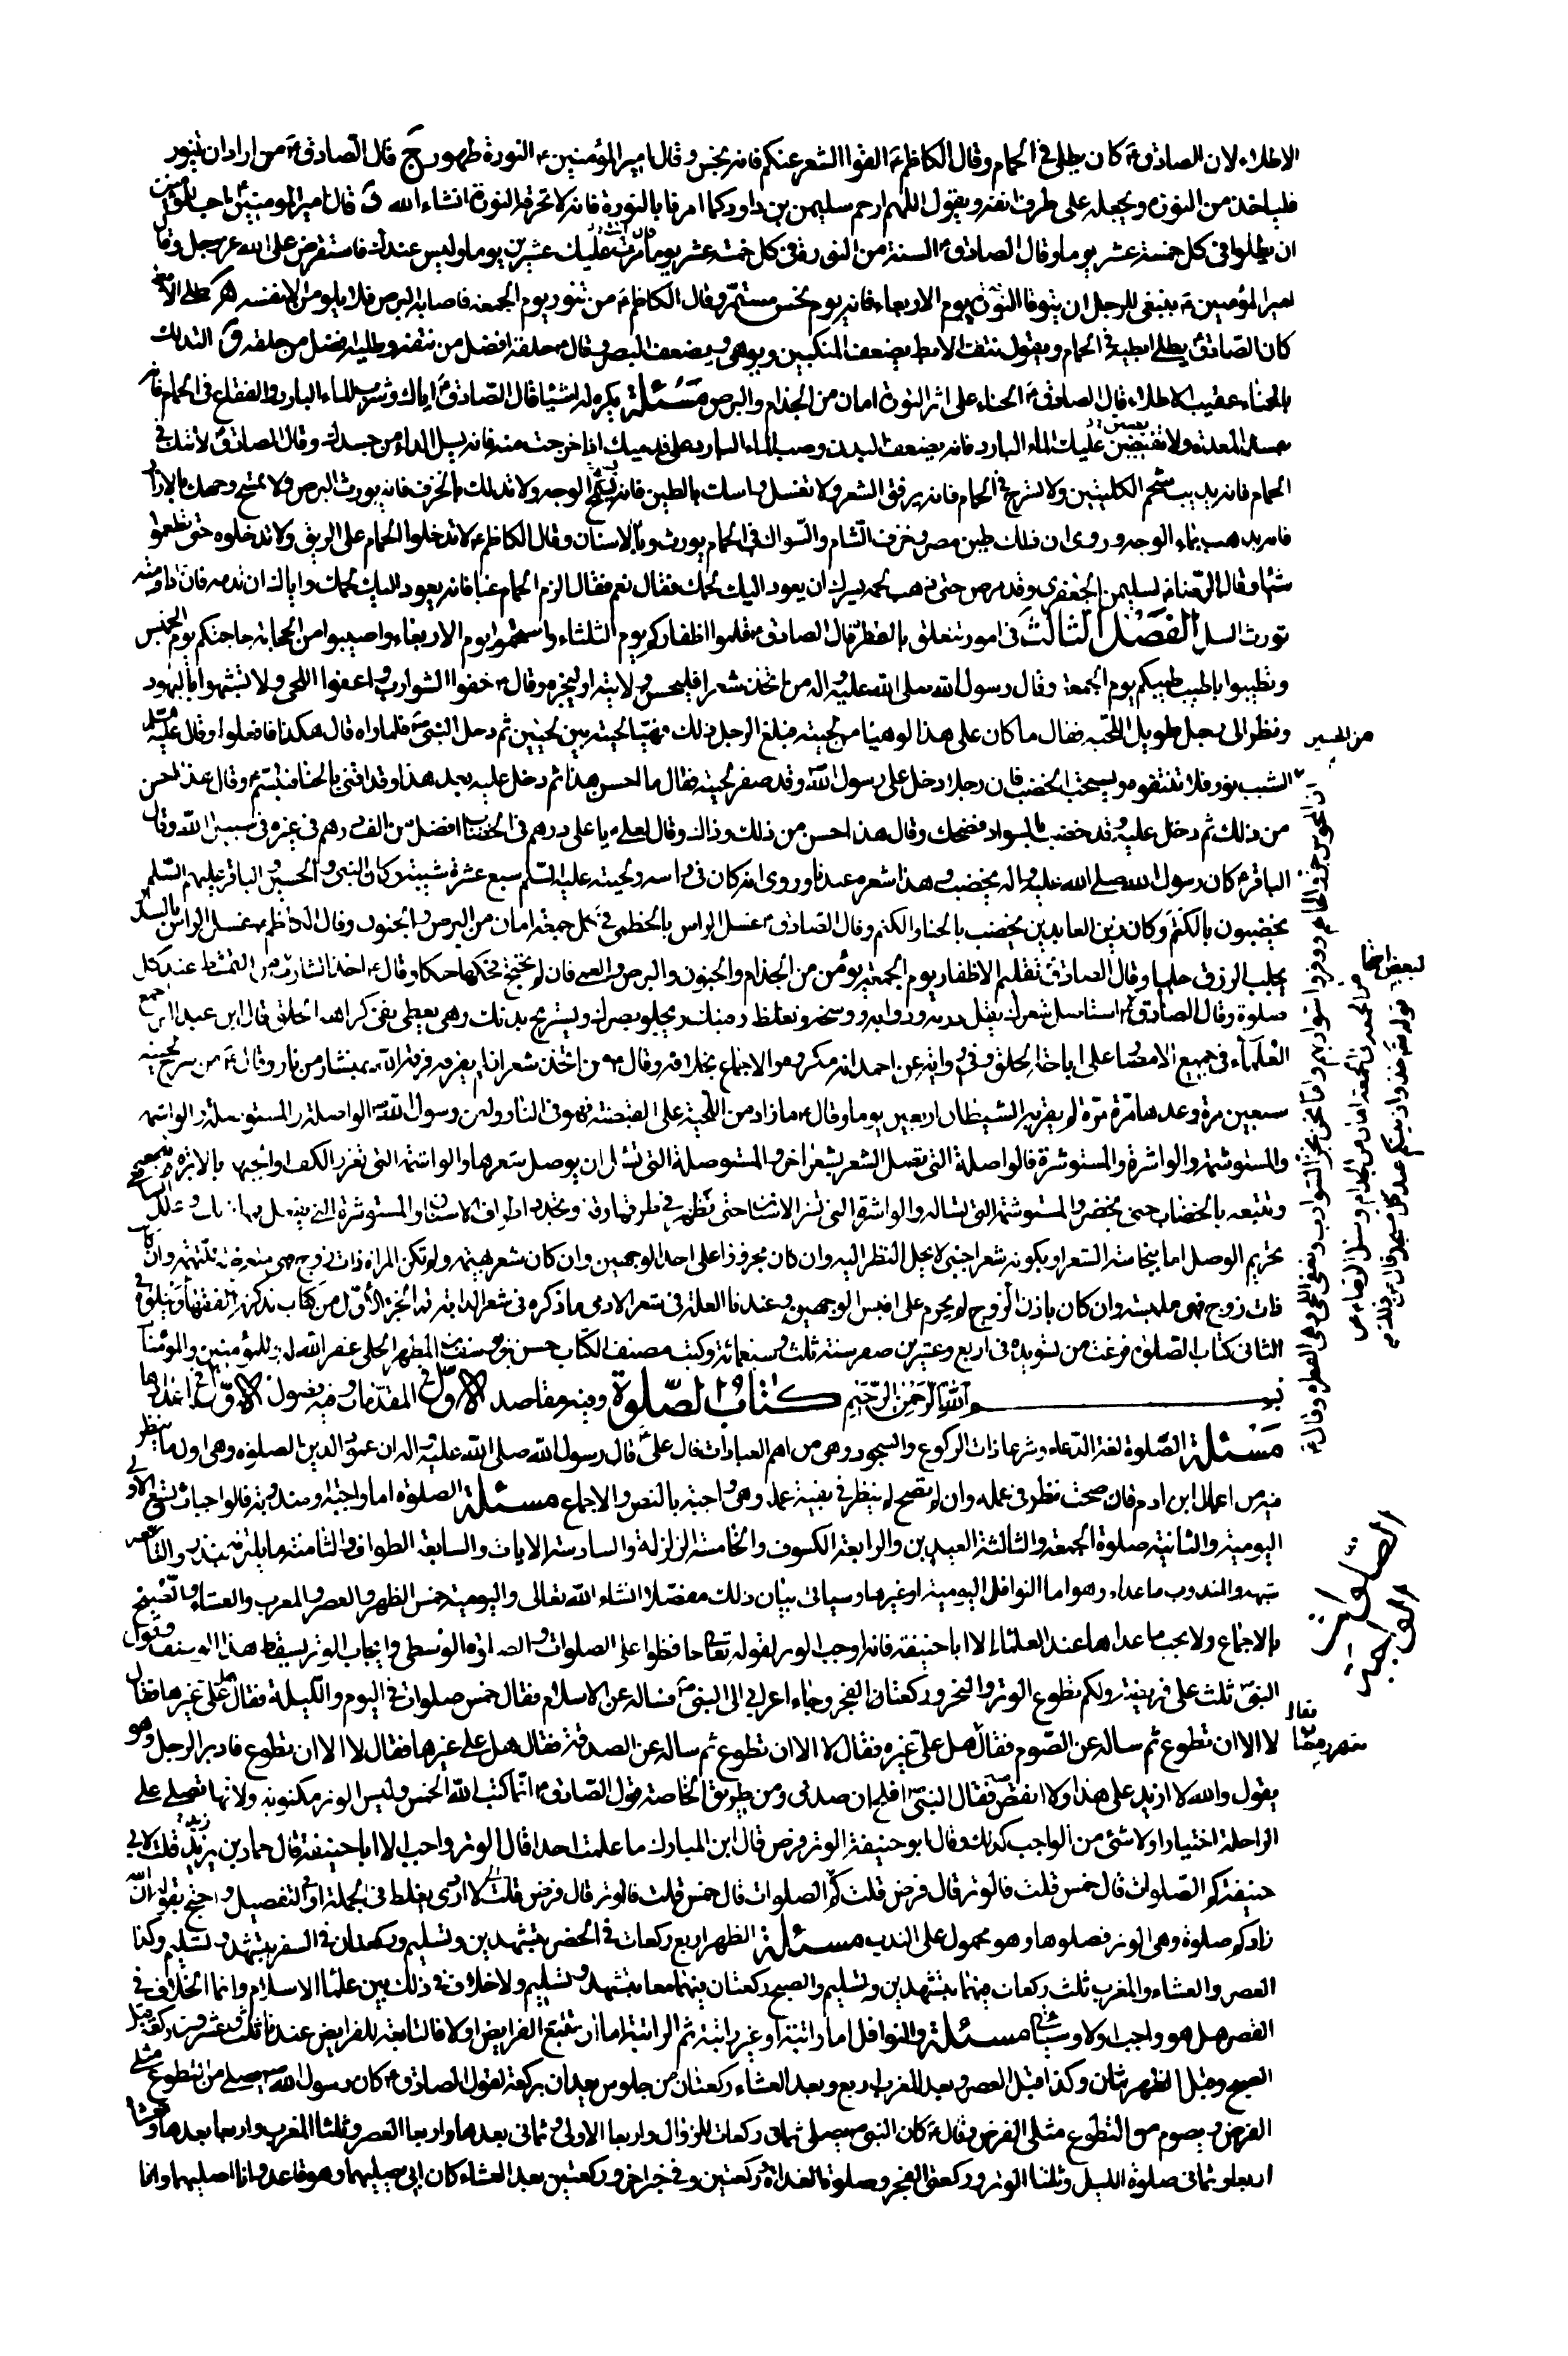 الاطلاء لان الصادق ع كان يطلى فى الحمام وقال الكاظم ع القوا الشعر عنكم فانه نجس وقال امير المؤمنين ع النورة طهور ج قال الصادق ع من اراد ان يتنور
فلياخذ من النورة ويجعله على طرف انفه ويقول اللهم ارحم سليمن بن داود كما امرنا بالنورة فانه لا تحرقه النورة انشاء الله د قال امير المومنين ع احب للمؤمن
ان يطلوا فى كل خمسة عشر يوما وقال الصادق ع السنة من النورة فى كل خمسة عشر يوما فان اتت عليك عشرين يوما وليس عندك فاستقرض على الله عز وجل وقال
امير المؤمنين ع ينبغى للرجل ان يتوقا النورة يوم الاربعاء فانه يوم نحس مستمر وقال الكاظم ع من تنور يوم الجمعة فاصابه البرص فلا يلومن الا نفسه
كان الصادق ع يطلى ابطيه فى الحمام ويقول نتف الابط يضعف المنكبين ويوهى ويضعف البصر وقال ع حلقه افضل من نتفه وطليه افضل من حلقه و التدلك
بالحناء عقيب الاطلاء قال الصادق ع الحناء على اثر النورة امان من الجذام والبرص مسئلة يكره له اشياء قال الصادق ع اياك وشرب الماء البارد والفقاع فى الحمام فانه
يفسد المعدة ولا تفيضن عليك الماء البارد فانه يضعف البدن وصب الماء البارد على قدميك اذا خرجت منه فانه يسل الداء من جسدك وقال الصادق ع لا تتك فى
الحمام فانه يذيب شحم الكليتين ولا تسرح فى الحمام فانه يرقق الشعر ولا تغسل راسك بالطين فانه يسمج الوجه ولا تدلك بالخزف فانه يورث البرص ولا تمسح وجهك بالازار
فانه يذهب بماء الوجه وروى ان ذلك طين مصر وخزف الشام والسواك فى الحمام يورث وباء الاسنان وقال الكاظم ع لا تدخلوا الحمام على الريق ولا تدخلوه حتى تطعموا
شيئا وقال الرضا ع لسليمن الجعفرى وقد مرض حتى ذهب لحمه يسرك ان يعود اليك لحمك فقال نعم فقال الزم الحمام غبا فانه يعود اليك لحمك واياك ان تدمنه فان ادمانه
تورث السل الفصل الثالث فى امور تتعلق بالفطرة قال الصادق ع قلموا اظفاركم يوم الثلثاء واستحموا يوم الاربعاء واصيبوا من الحجامة حاجتكم يوم الخميس
وتطيبوا باطيب طيبكم يوم الجمعة وقال رسول الله صلى الله عليه واله من اتخذ شعرا فليحسن ولايته او ليجزه وقال ع حفوا الشوارب واعفوا اللحى ولا تشبهوا باليهود
ونظر الى رجل طويل اللحية فقال ما كان على هذا لو هيا من لحيته فبلغ الرجل ذلك فهيا لحيته بين لحيتين ثم دخل على النبى ص فلما راه قال هكذا فافعلوا وقال عليه السلم
الشيب نور فلا تنتفوه ويستحب الخضب فان رجلا دخل على رسول الله ص وقد صفر لحيته فقال ما احسن هذا ثم دخل عليه بعد هذا وقد اقنى بالحنا فتبسم ع وقال هذا احسن
من ذلك ثم دخل عليه وقد خضب بالسواد فضحك وقال هذا احسن من ذلك وذاك وقال لعلى ع يا على درهم فى الخضاب افضل من الف درهم فى غيره فى سبيل الله وقال
الباقر ع كان رسول الله صلى الله عليه واله يخضب وهذا شعره عندنا وروى انه كان فى راسه ولحيته عليه السلم سبع عشرة شيبة وكان النبى والحسين والباقر عليهم السلم
يخضبون بالكتم وكان زين العابدين يخضب بالحنا والكتم وقال الصادق ع غسل الراس بالخطمى فى كل جمعة امان من البرص والجنون وقال الكاظم ع غسل الراس بالسدر
يجلب الرزق جلبا وقال الصادق ع تقليم الاظفار يوم الجمعة يؤمن من الجذام والجنون والبرص والعمى فان لم يحتج فحكها حكا وقال ع اخذ الشارب من التمشط عند كل
صلوة وقال الصادق ع استاصل شعرك يقل درنه ودوابه ووسخه وتغلظ رقبتك ويجلو بصرك ويستريح بدنك وهى يعطى نفى كراهة الحلق قال ابن عبد البر اجمع
العلماء فى جميع الامصار على اباحة الحلق وفى رواية عن احمد انه مكروه والاجماع بخلافه وقال ص من اتخذ شعرا فلم يفرقه فرقه الله بمنشار من نار وقال ع من سرح لحيته
سبعين مرة وعدها مرة مرة لم يقربه الشيطان اربعين يوما وقال ع ما زاد من اللحية على القبضة فهو فى النار ولعن رسول الله ص الواصلة والمستوصلة والواشمة
والمستوشمة والواشرة والمستوشرة فالواصلة التى تصل الشعر بشعر اخر والمستوصلة التى تسال ان يوصل شعرها والواشمة التى تغرز الكف او الجبهة بالابرة
وتتبعه بالخضاب حتى يخضر والمستوشمة التى تساله والواشرة التى تنشر الاسنان حتى تظهر فى طرفها رقة وتحدد اطراف الاسنان والمستوشرة التى يفعل بها ذلك وعلل
تحريم الوصل اما بنجاسة الشعر او بكونه شعر اجنبى لا يحل النظر اليه وان كان مجزوزا على احد الوجهين وان كان شعر بهيمة ولم تكن المراة ذات زوج فهى متعرضة للتهمة وان كانت
ذات زوج فهى ملبسة وان كان باذن الزوج لم يحرم على اقيس الوجهين وعندنا العلة فى شعر الادمى ما ذكره فى شعر الدابة تم الجزء الاول من كتاب تذكرة الفقهاء ويتلوه فى
الثانى كتاب الصلوة فرغت من تسويده فى اربع وعشرين صفر سنة ثلث وسبعمائة وكتب مصنف الكتاب حسن بن يوسف بن المطهر الحلى غفر الله له وللمؤمنين والمؤمنات
بسم الله الرحمن الرحيم كتاب الصلوة وفيه مقاصد الاول فى المقدمات وفيه فصول الاول فى اعدادها
مسئلة الصلوة لغة الدعاء وشرعا ذات الركوع والسجود وهى من اهم العبادات قال على ع قال رسول الله صلى الله عليه واله ان عمود الدين الصلوة وهى اول ما ينظر
فيه من اعمال ابن ادم فان صحت نظر فى عمله وان لم تصح لم ينظر فى بقية عمله وهى واجبة بالنص والاجماع مسئلة الصلوة اما واجبة او مندوبة فالواجبات تسع الاولى
اليومية والثانية صلوة الجمعة والثالثة العيدين والرابعة الكسوف والخامسة الزلزلة والسادسة الايات والسابعة الطواف والثامنة ما يلتزمه بنذر
شبهه والمندوب ما عداه وهو اما النوافل اليومية او غيرها وسياتى بيان ذلك مفصلا انشاء الله تعالى واليومية خمس الظهر والعصر والمغرب والعشاء والصبح
بالاجماع ولا يجب ما عداها عند العلماء الا ابا حنيفة فانه اوجب الوتر لقوله تعالى حافظوا على الصلوات والصلوة الوسطى وايجاب الوتر يسقط هذا الوصف وقول
النبى ص ثلث على فريضة ولكم تطوع الوتر والنحر وركعتان الفجر وجاء اعرابى الى النبى ص فساله عن الاسلام فقال خمس صلوات فى اليوم والليلة فقال هل على غيرها فقال
لا الا ان تطوع ثم ساله عن الصوم فقال هل على غيره فقال لا الا ان تطوع ثم ساله عن الصدقة فقال هل على غيرها فقال لا الا ان تطوع فادبر الرجل وهو
يقول والله لا ازيد على هذا ولا انقص فقال النبى ص افلح ان صدق ومن طريق الخاصة قول الصادق ع انما كتب الله الخمس وليس الوتر مكتوبة ولانها تصلى على
الراحلة اختيارا ولا شئ من الواجب كذلك وقال ابو حنيفة الوتر فرض قال ابن المبارك ما علمت احدا قال الوتر واجب الا ابا حنيفة قال حماد بن زيد قلت لابى
حنيفة كم الصلوات قال خمس قلت فالوتر قال فرض قلت كم الصلوات قال خمس قلت فالوتر قال فرض قلت لا ادرى يغلط فى الجملة او التفصيل واحتج بقوله ان الله
زادكم صلوة وهى الوتر فصلوها وهو محمول على الندب مسئلة الظهر اربع ركعات فى الحضر بتشهدين وتسليم وركعتان فى السفر بتشهد وتسليم وكذا
العصر والعشاء والمغرب ثلث ركعات فيهما بتشهدين وتسليم والصبح ركعتان فيهما معا بتشهد وتسليم ولا خلاف فى ذلك بين علماء الاسلام وانما الخلاف فى
القصر هل هو واجب او لا وسياتى مسئلة والنوافل اما راتبة او غير راتبة ثم الراتبة اما ان تتبع الفرايض او لا فالتابعة للفرايض عندنا ثلث وعشرون ركعة قبل
الصبح وقبل الظهر ثمان وكذا قبل العصر وبعد المغرب اربع وبعد العشاء ركعتان من جلوس يعدان بركعة لقول الصادق ع كان رسول الله ص يصلى من التطوع مثلى
الفرض ويصوم من التطوع مثلى الفرض وقال ع كان النبى ص يصلى ثمانى ركعات للزوال واربعا الاولى وثمانى بعدها واربعا العصر وثلثا المغرب واربعا بعدها والعشاء
اربعا وثمانى صلوة الليل وثلثا الوتر وركعتى الفجر وصلوة الغداة ركعتين وفى خبر اخر وركعتين بعد العشاء كان ابى يصليهما وهو قاعد وانا اصليهما وانا
الصلوات
الواجبة